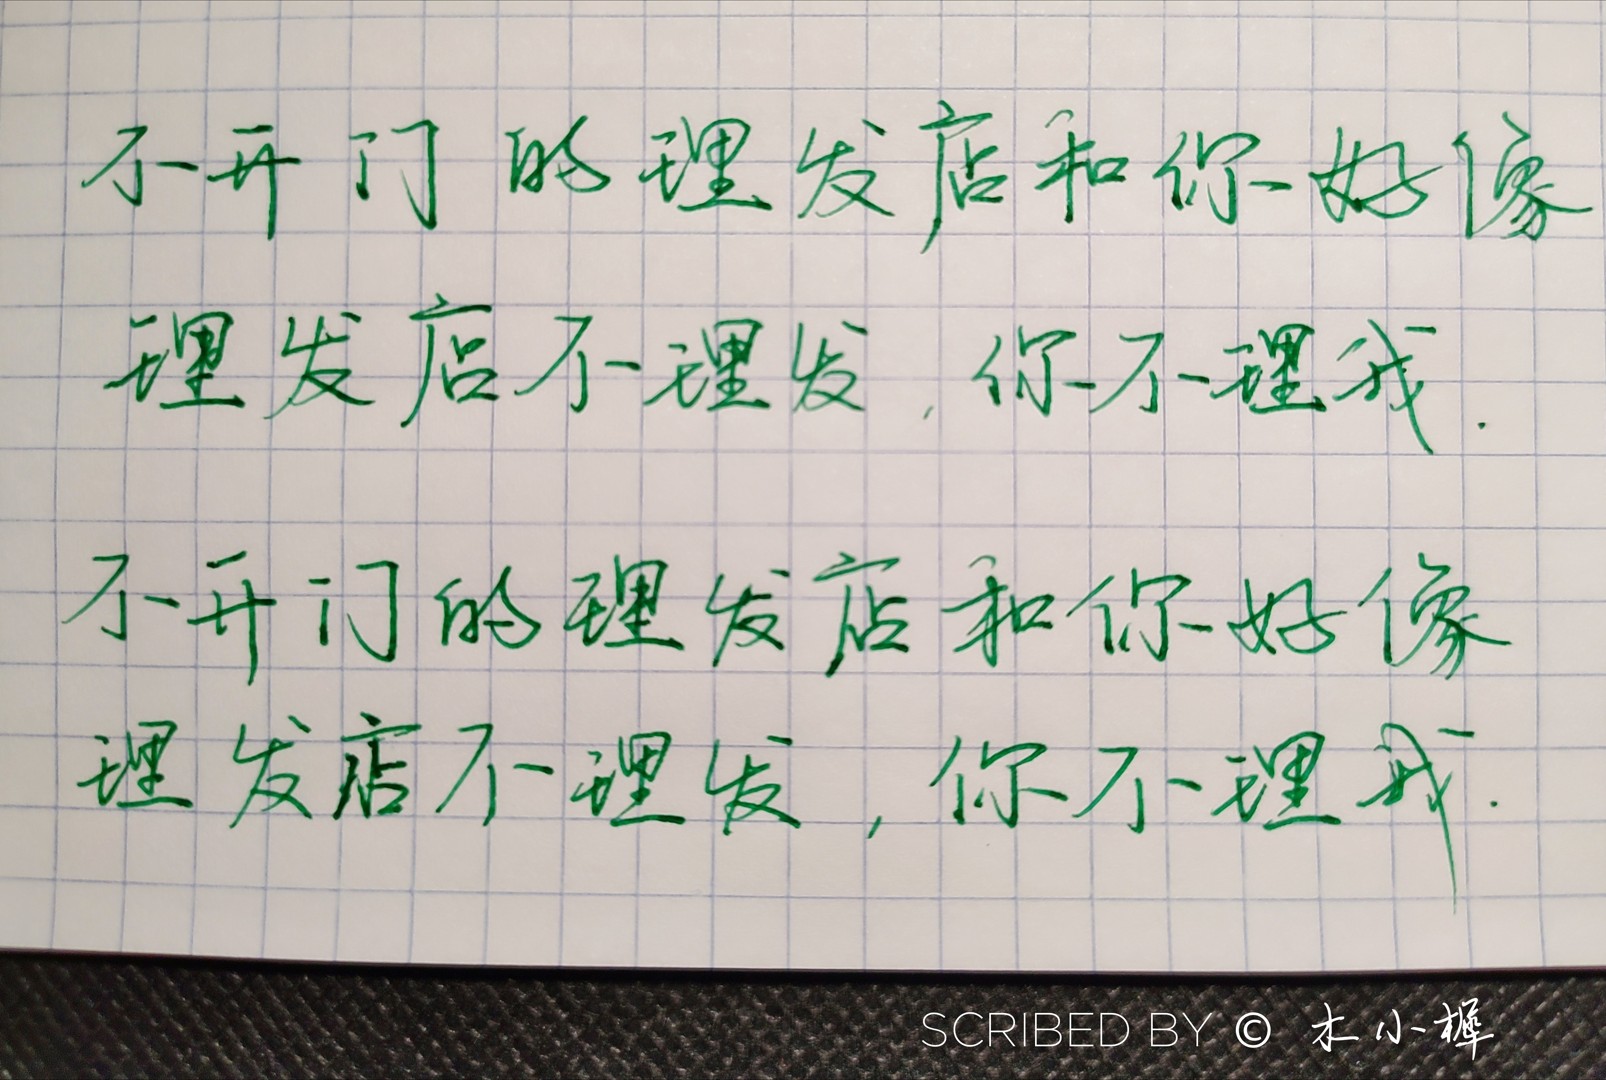 不开门的理发店和你好像
理发店不理发，你不理我.
不开门的理发店和你好像
理发店不理发，你不理我.
SCRIBED BY © 木小樨